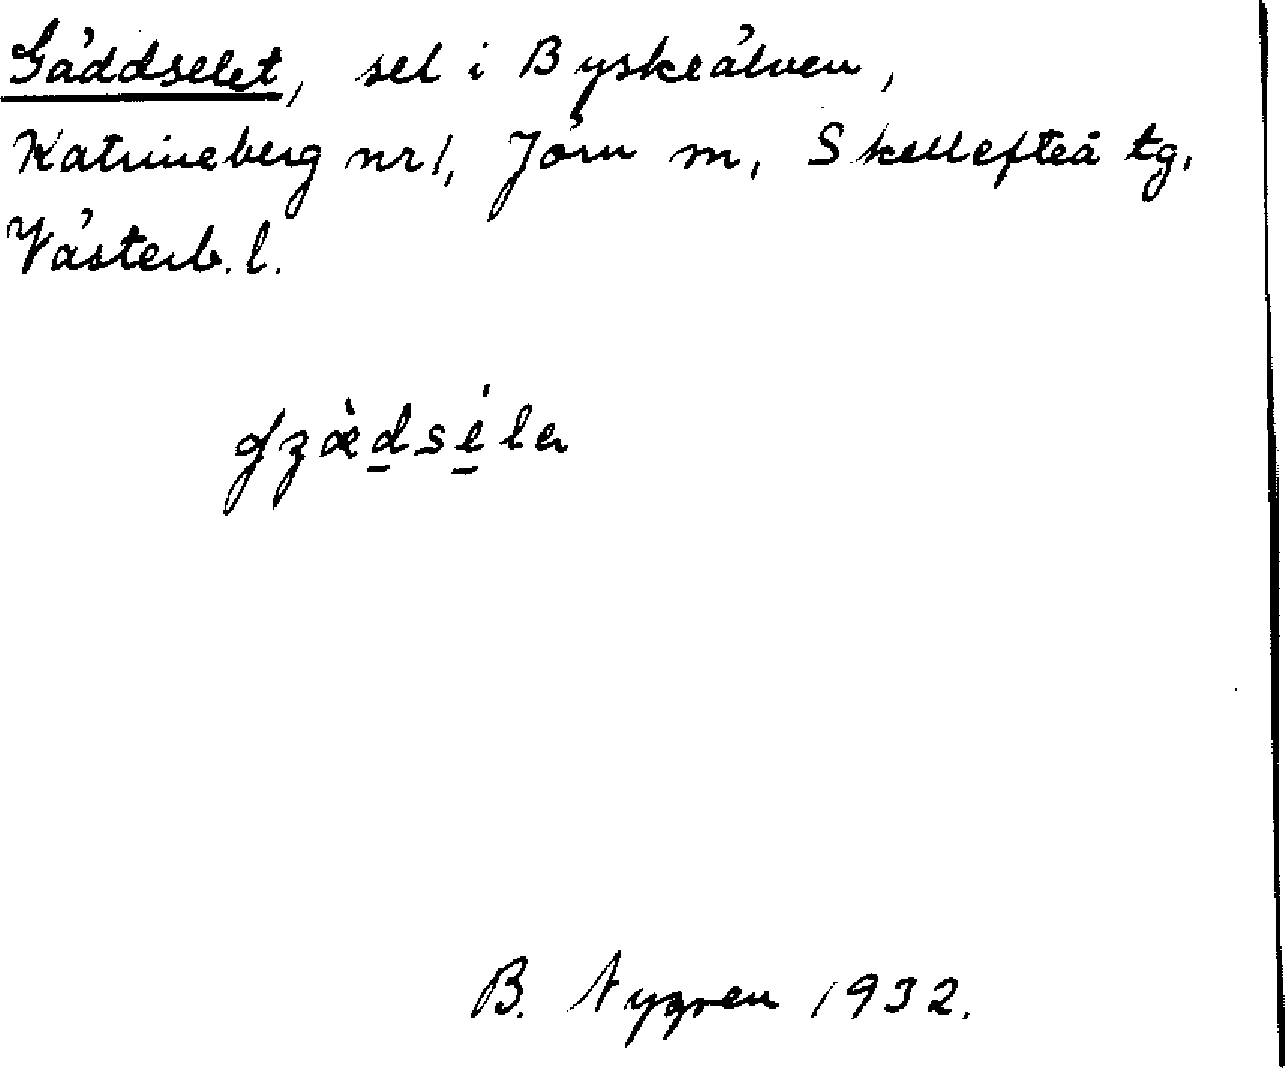 Gäddselet, sel i Byskeälven,
Katrineberg nr 1, Jörn sn, Skellefteå tg.
Västerb. l.
B. Nygren 1932.